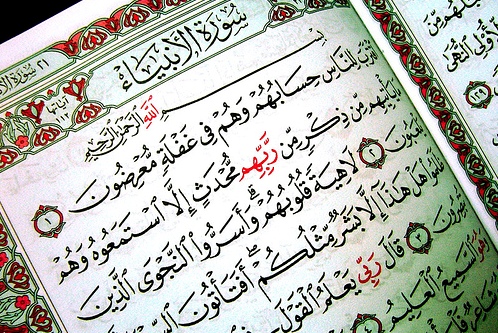 ٢١ سورة الأنبياء
آياتها
١١٢
سُورَةُ الْأَنْبِيَاءِ
بِسْمِ اللَّهِ الرَّحْمَٰنِ الرَّحِيمِ
لِلنَّاسِ حِسَابُهُمْ وَهُمْ فِي غَفْلَةٍ مُّعْرِضُونَ ١
يَأْتِيهِم مِّن ذِكْرٍ مِّن رَّبِّهِم مُّحْدَثٍ إِلَّا اسْتَمَعُوهُ وَهُمْ
يَلْعَبُونَ ٢ لَاهِيَةً قُلُوبُهُمْ وَأَسَرُّوا النَّجْوَى الَّذِينَ
ظَلَمُوا هَلْ هَٰذَا إِلَّا بَشَرٌ مِّثْلُكُمْ أَفَتَأْتُونَ
تُبْصِرُونَ ٣ قَالَ رَبِّي يَعْلَمُ الْقَوْلَ
وَهُوَ السَّمِيعُ الْعَلِيمُ